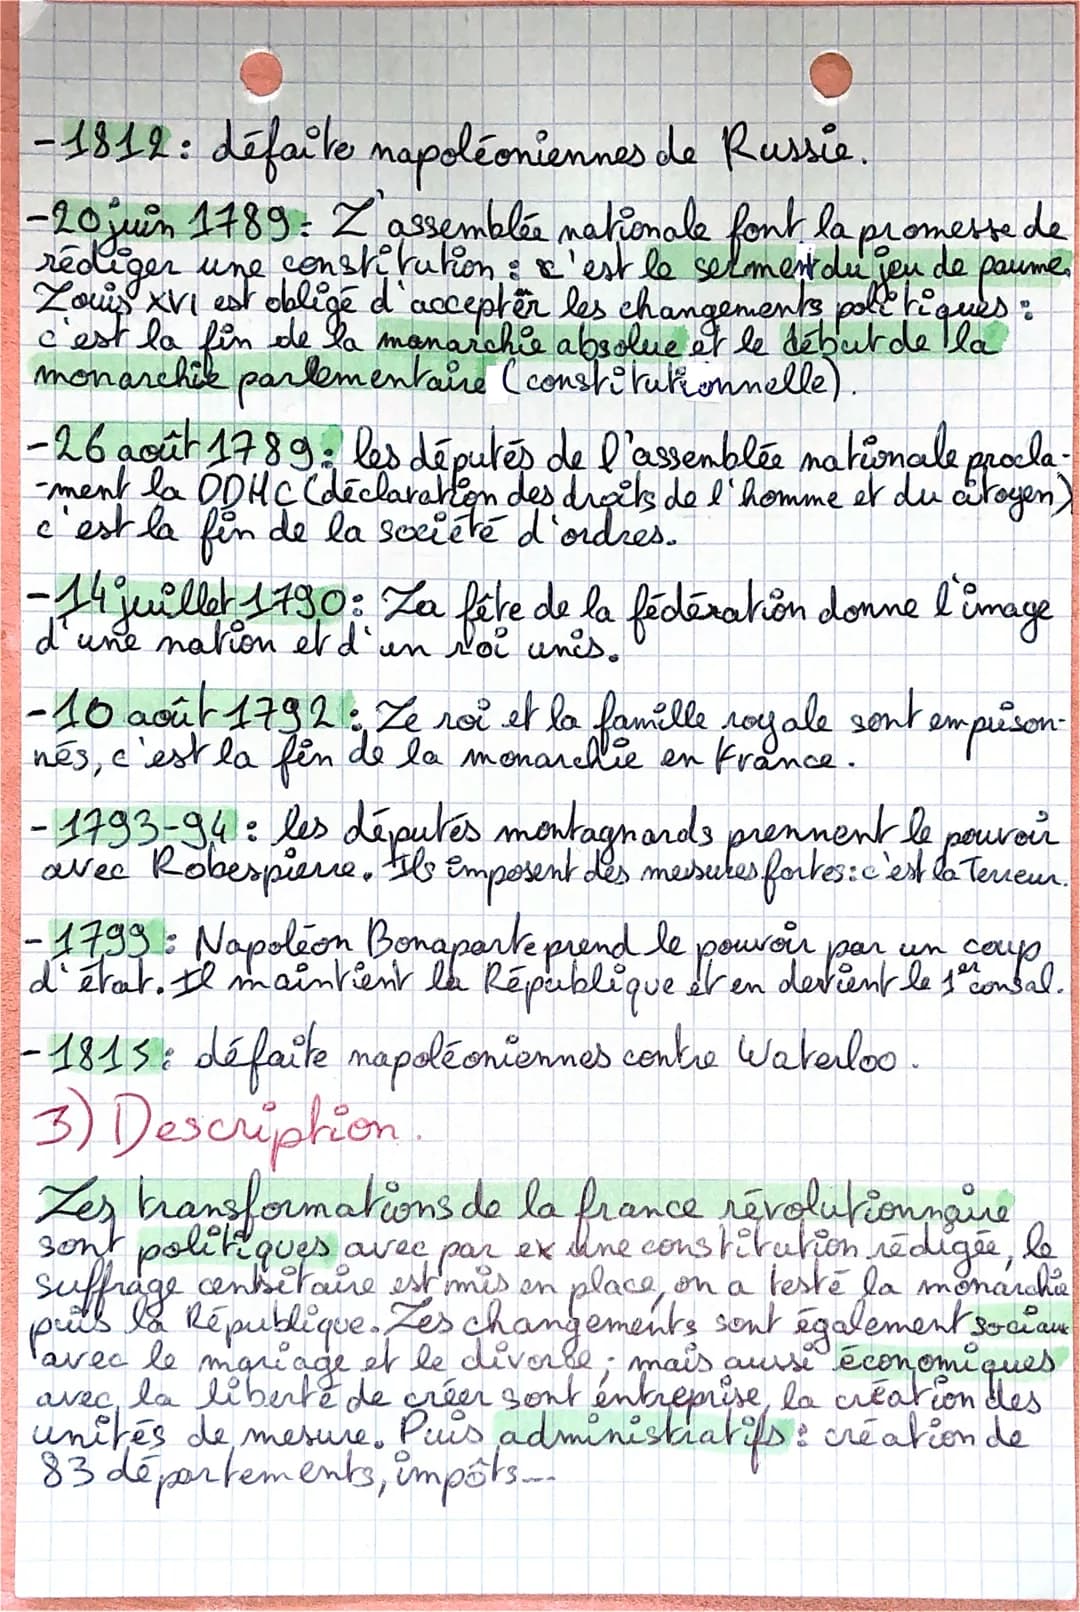 -1812 : défaite napoléoniennes de Russie.
-20 juin 1789 : L'assemblée nationale font la promesse de
rédiger une constitution : c'est le serment du jeu de paume.
Louis XVI est obligé d'accepter les changements politiques :
c'est la fin de la monarchie absolue et le début de la
monarchie parlementaire (constitutionnelle).
-26 août 1789 : les députés de l'assemblée nationale procla-
-ment la DDHC (déclaration des droits de l'homme et du citoyen)
c'est la fin de la société d'ordres.
-14 juillet 1790 : La fête de la fédération donne l'image
d'une nation et d'un roi unis.
-10 août 1792 : Le roi et la famille royale sont emprison-
nés, c'est la fin de la monarchie en France.
- 1793-94 : les députés montagnards prennent le pouvoir
avec Robespierre. Ils imposent des mesures fortes : c'est la Terreur.
- 1799 : Napoléon Bonaparte prend le pouvoir par un coup
d'état. Il maintient la République et en devient le 1er consul.
- 1815 : défaite napoléoniennes contre Waterloo.
3) Description.
Les transformations de la france révolutionnaire
sont politiques avec par ex une constitution rédigée, le
suffrage censitaire est mis en place, on a testé la monarchie
puis la République. Les changements sont également sociaux
avec le mariage et le divorce ; mais aussi économiques
avec la liberté de créer sont entreprise, la création des
unités de mesure. Puis administratifs : création de
83 départements, impôts...